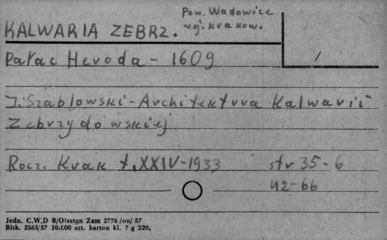 Pow. Wadowice
KALWARIA ZEBRZ. wg. krakow.
Pałac Heroda - 1609
J. Szablowski - Architektura Kalwarii
Zebrzydowskiej
Rocz. Krak t. XXIV - 1933 str 35-6
42-66
Jedn. C.W.D 8/Olsztyn Zam 2776/on/57
Bltk. 2563/57 10.000 szt. karton kl. 7 g 220.